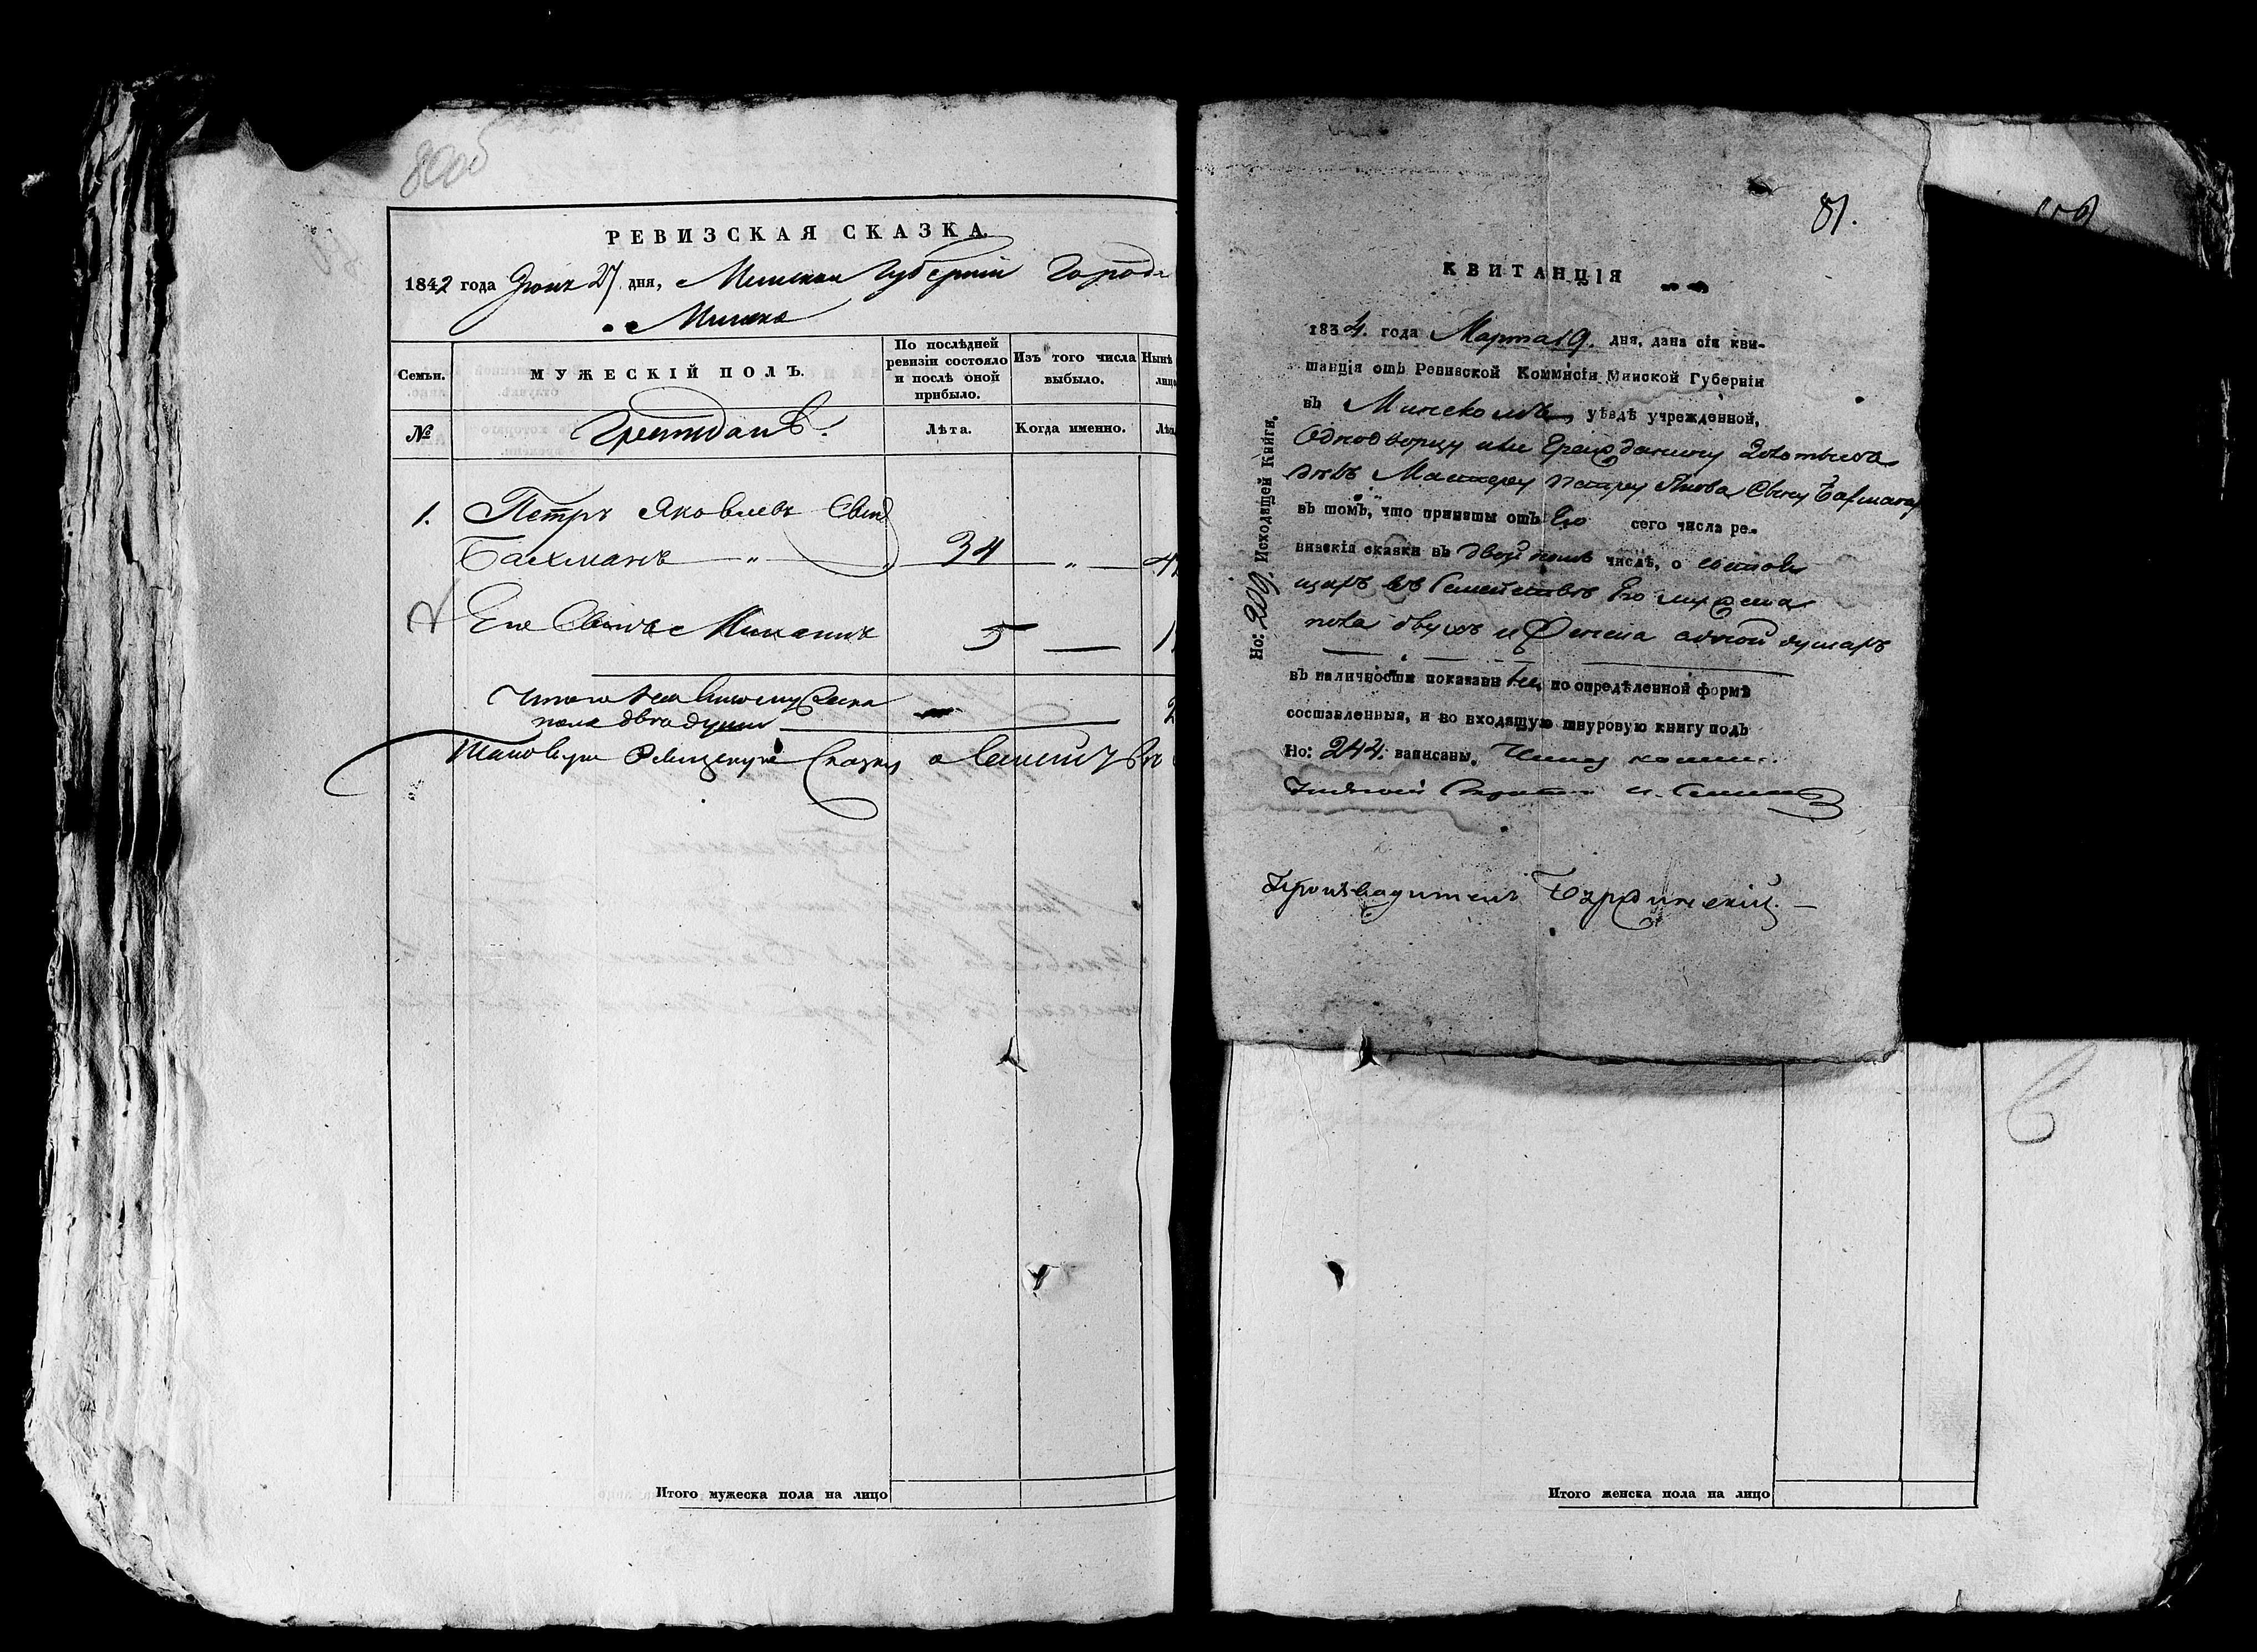 80об
РЕВИЗСКАЯ СКАЗКА.
1842 года Июня 27 дня, Минской Губерніи Города
Минска
Семьи.
МУЖЕСКІЙ ПОЛЪ.
По послѣдней ревизіи состояло и послѣ оной прибыло.
Изъ того числа выбыло.
Нынѣ
лицо
№
Гражданъ.
Лѣта.
Когда именно.
Лѣта
1. Петръ Яковлевъ Сынъ
Бахманъ 34
Его Сынъ 5
Итого на лицо мужеска
пола двѣ души 2
Таковую Ревизскую Сказку о
Итого мужеска пола на лицо
81.
КВИТАНЦІЯ
1834. года Марта 19. дня, дана сія кви-
танція отъ Ревизской Коммисіи Минской Губерніи
въ Минскомъ уѣздѣ учрежденной,
Однодворцу или Гражданину
Мастеру Петру Якова Сыну Бахману
въ томъ, что приняты отъ Его сего числа ре-
визскія сказки въ двой номъ числѣ, о состоя
щихъ въ Семействѣ Его мужеска
пола двухъ и Женска одной душахъ
въ наличности показаны по опредѣленной формѣ
составленныя, и во входящую шнуровую книгу подъ
Но: 244. записаны.
Производитель
Но: 209. Исходящей Книги.
Итого женска пола на лицо